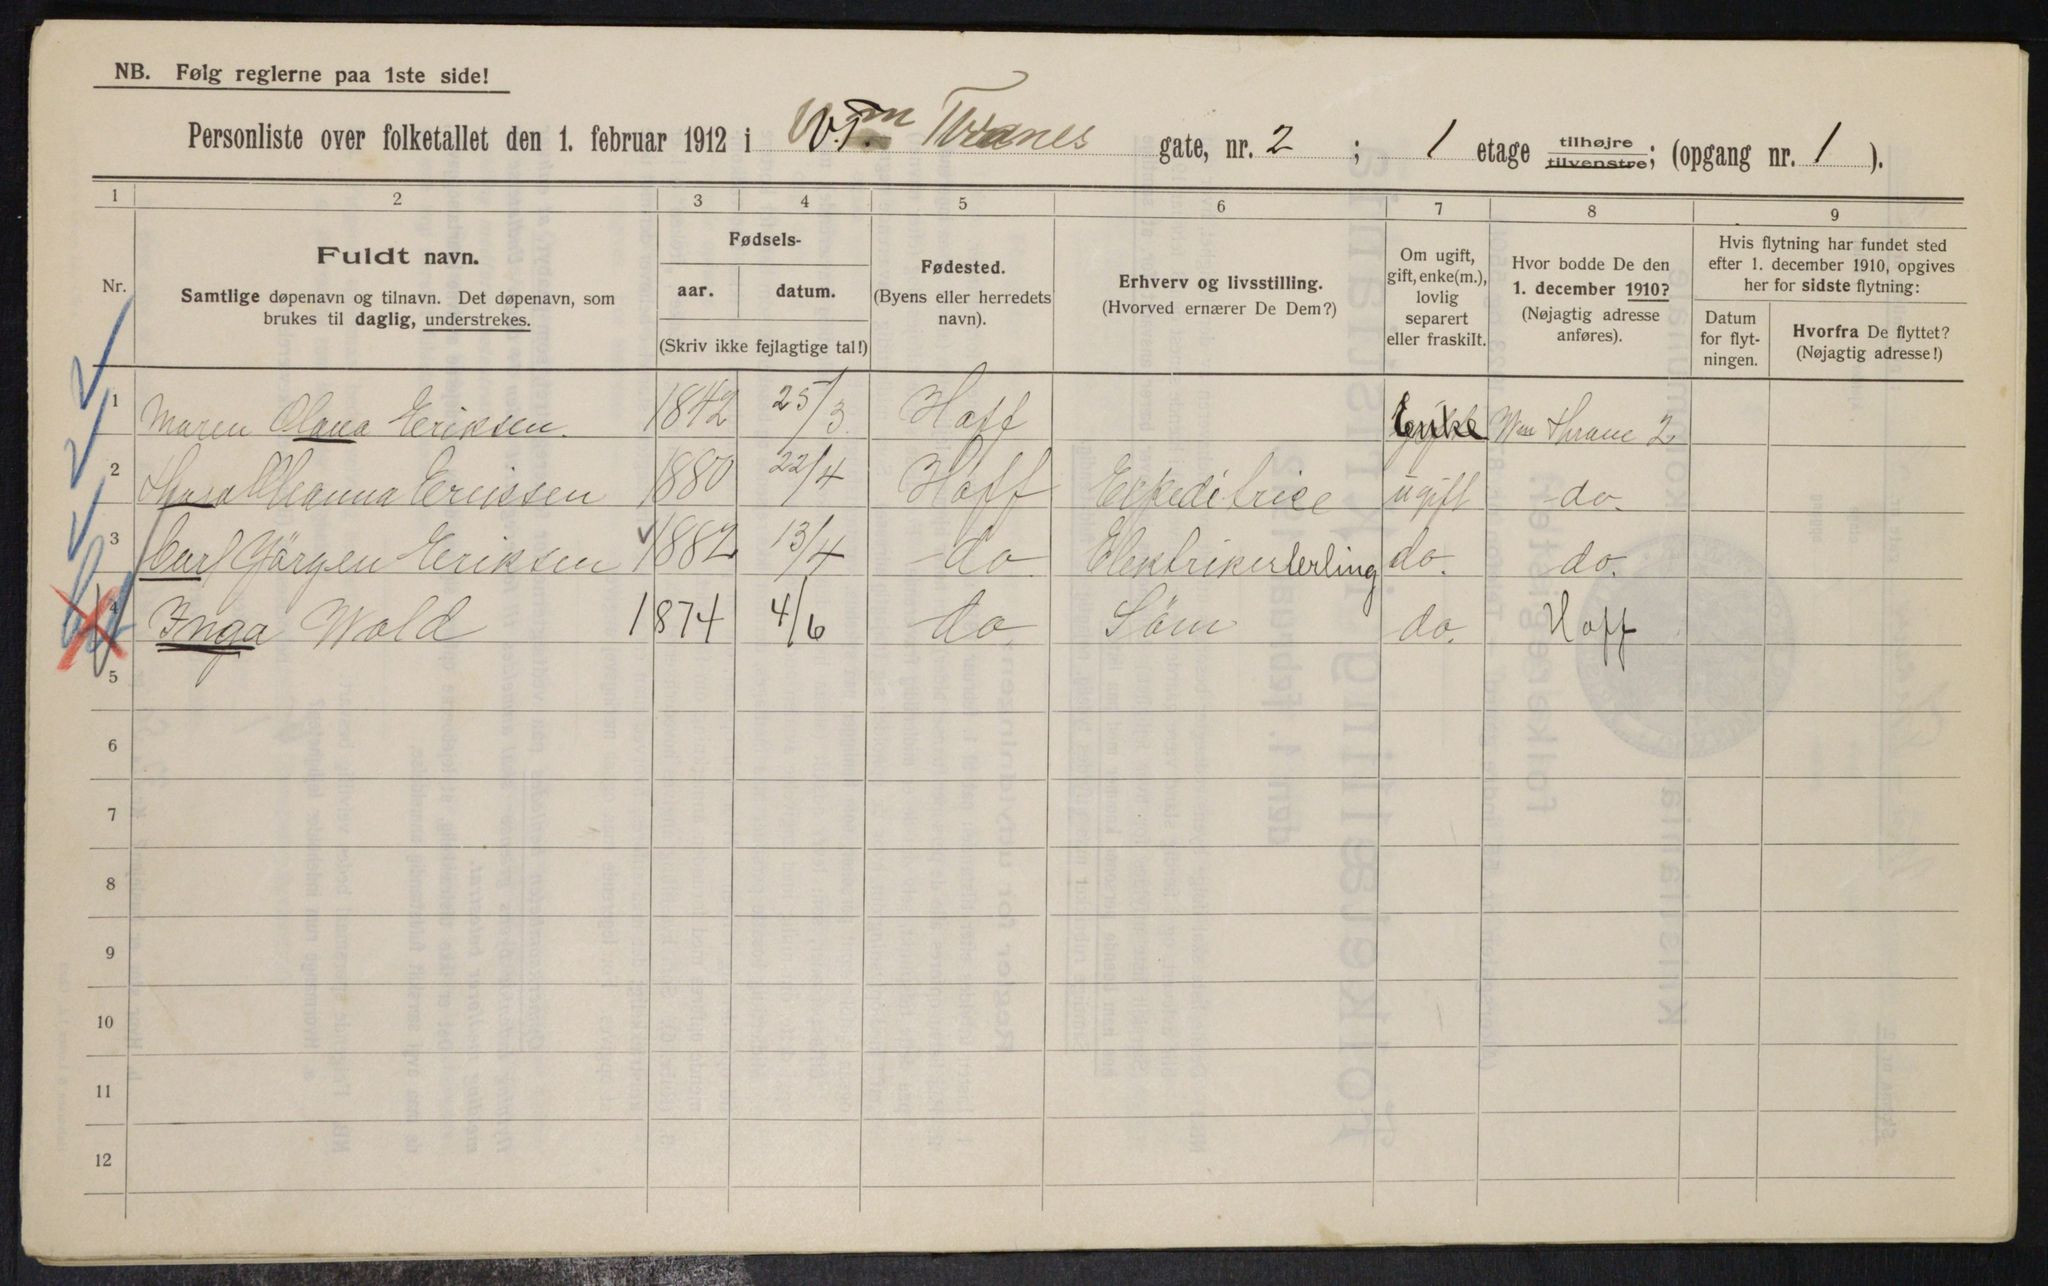 NB. Følg reglerne paa 1ste side!
Personliste over folketallet den 1. februar 1912 i Wm Thranes gate, nr. 2 ; 1 etage tilhøjre tilvenstre; (opgang nr. 1 ).
1 2 3 4 5 6 7 8 9
Nr.
Fuldt navn.
Samtlige døpenavn og tilnavn. Det døpenavn, som
brukes til daglig, understrekes.
Fødsels-
aar. datum.
(Skriv ikke fejlagtige tal!)
Fødested.
(Byens eller herredets
navn).
Erhverv og livsstilling.
(Hvorved ernærer De Dem?)
Om ugift,
gift, enke(m.),
lovlig
separert
eller fraskilt.
Hvor bodde De den
1. december 1910?
(Nøjagtig adresse
anføres).
Hvis flytning har fundet sted
efter 1. december 1910, opgives
her for sidste flytning:
Datum
for flyt-
ningen.
Hvorfra De flyttet?
(Nøjagtig adresse!)
1 Maren Olava Eriksen. 1842 25/3 Hoff Enke Wm Thrane 2
2 Eriksen 1880 22/4 Hoff Expeditrice ugift do.
3 Carl Jörgen Eriksen 1882 13/4 do Elektrikerlerling do. do.
4 Inga Wold 1874 4/6 do Söm do. Hoff
5
6
7
8
9
10
11
12